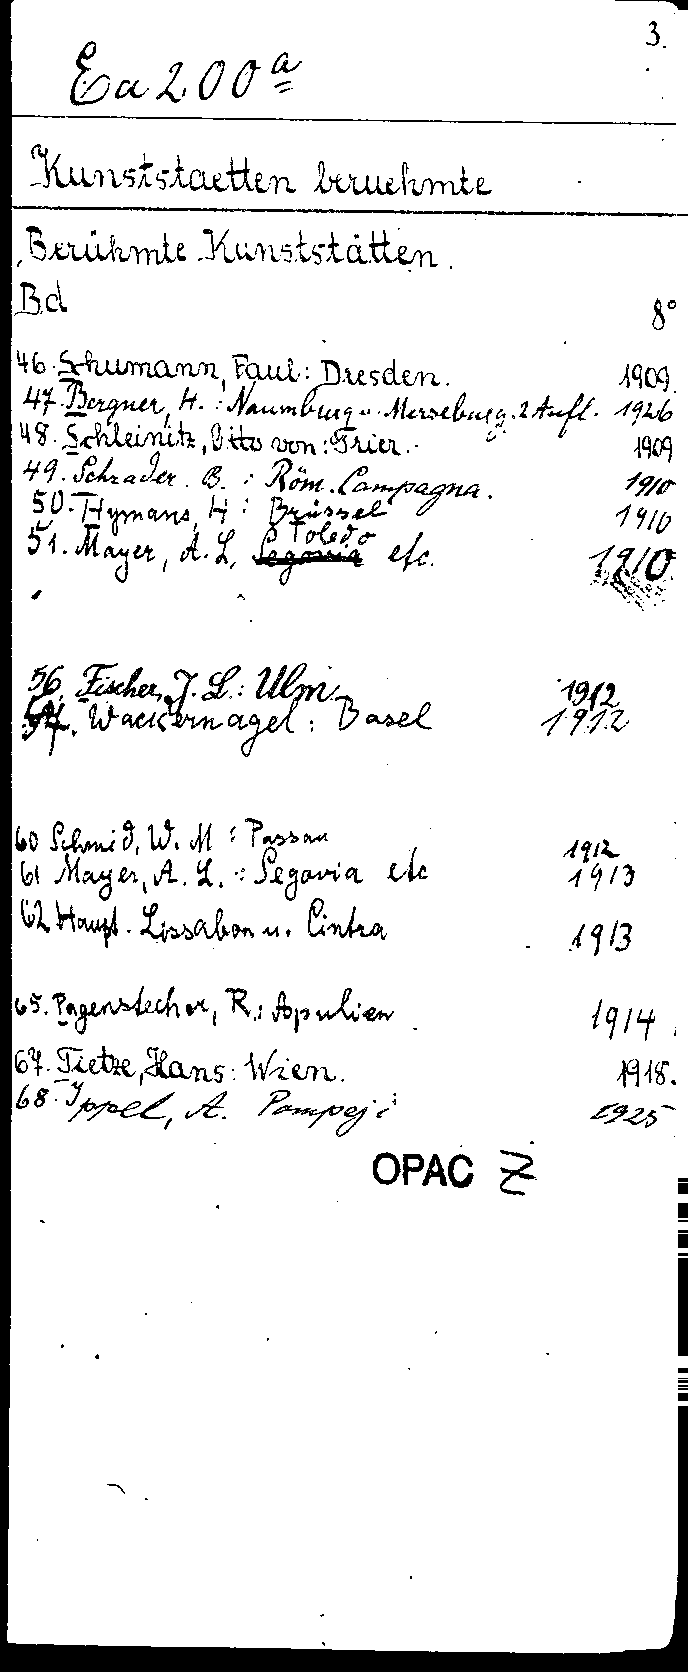 3.
Ea 200a
Kunststaetten beruehmte
Berühmte Kunststätten.
Bd 8°
46. Schumann, Paul: Dresden. 1909.
47. Bergner, H.: Naumburg u. Merseburg. 2 Aufl. 1926
48. Schleinitz, Otto von: Trier. 1909
49. Schrader. B.: Röm. Campagna. 1910
50. Hymans, H: Brüssel 1910
51. Mayer, A. L, Segovia Toledo etc. 1910
56. Fischer, J. L.: Ulm 1912
57. Wackernagel: Basel 1912
60 Schmid, W. M: Passau 1912
61 Mayer, A. L.: Segovia etc 1913
62 Haupt. Lissabon u. Cintra 1913
65. Pagenstecher, R.: Apulien 1914
67. Tietze, Hans: Wien. 1918.
68. Ippel, A. Pompeji 1925
OPAC Z